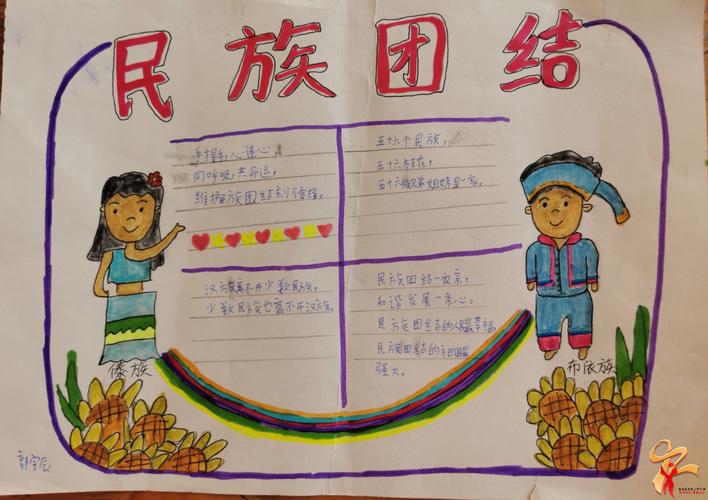 民族团结
手握手,心连心,
同呼吸,共命运,
维护民族团结刻不容缓。
五十六个民族,
五十六枝花,
五十六族兄弟姐妹是一家。
汉族离不开少数民族,
少数民族也离不开汉族。
民族团结一家亲,
和谐发展一条心。
民族团结的人民最幸福,
民族团结的祖国最
强大。
傣族
布依族
郭宇辰